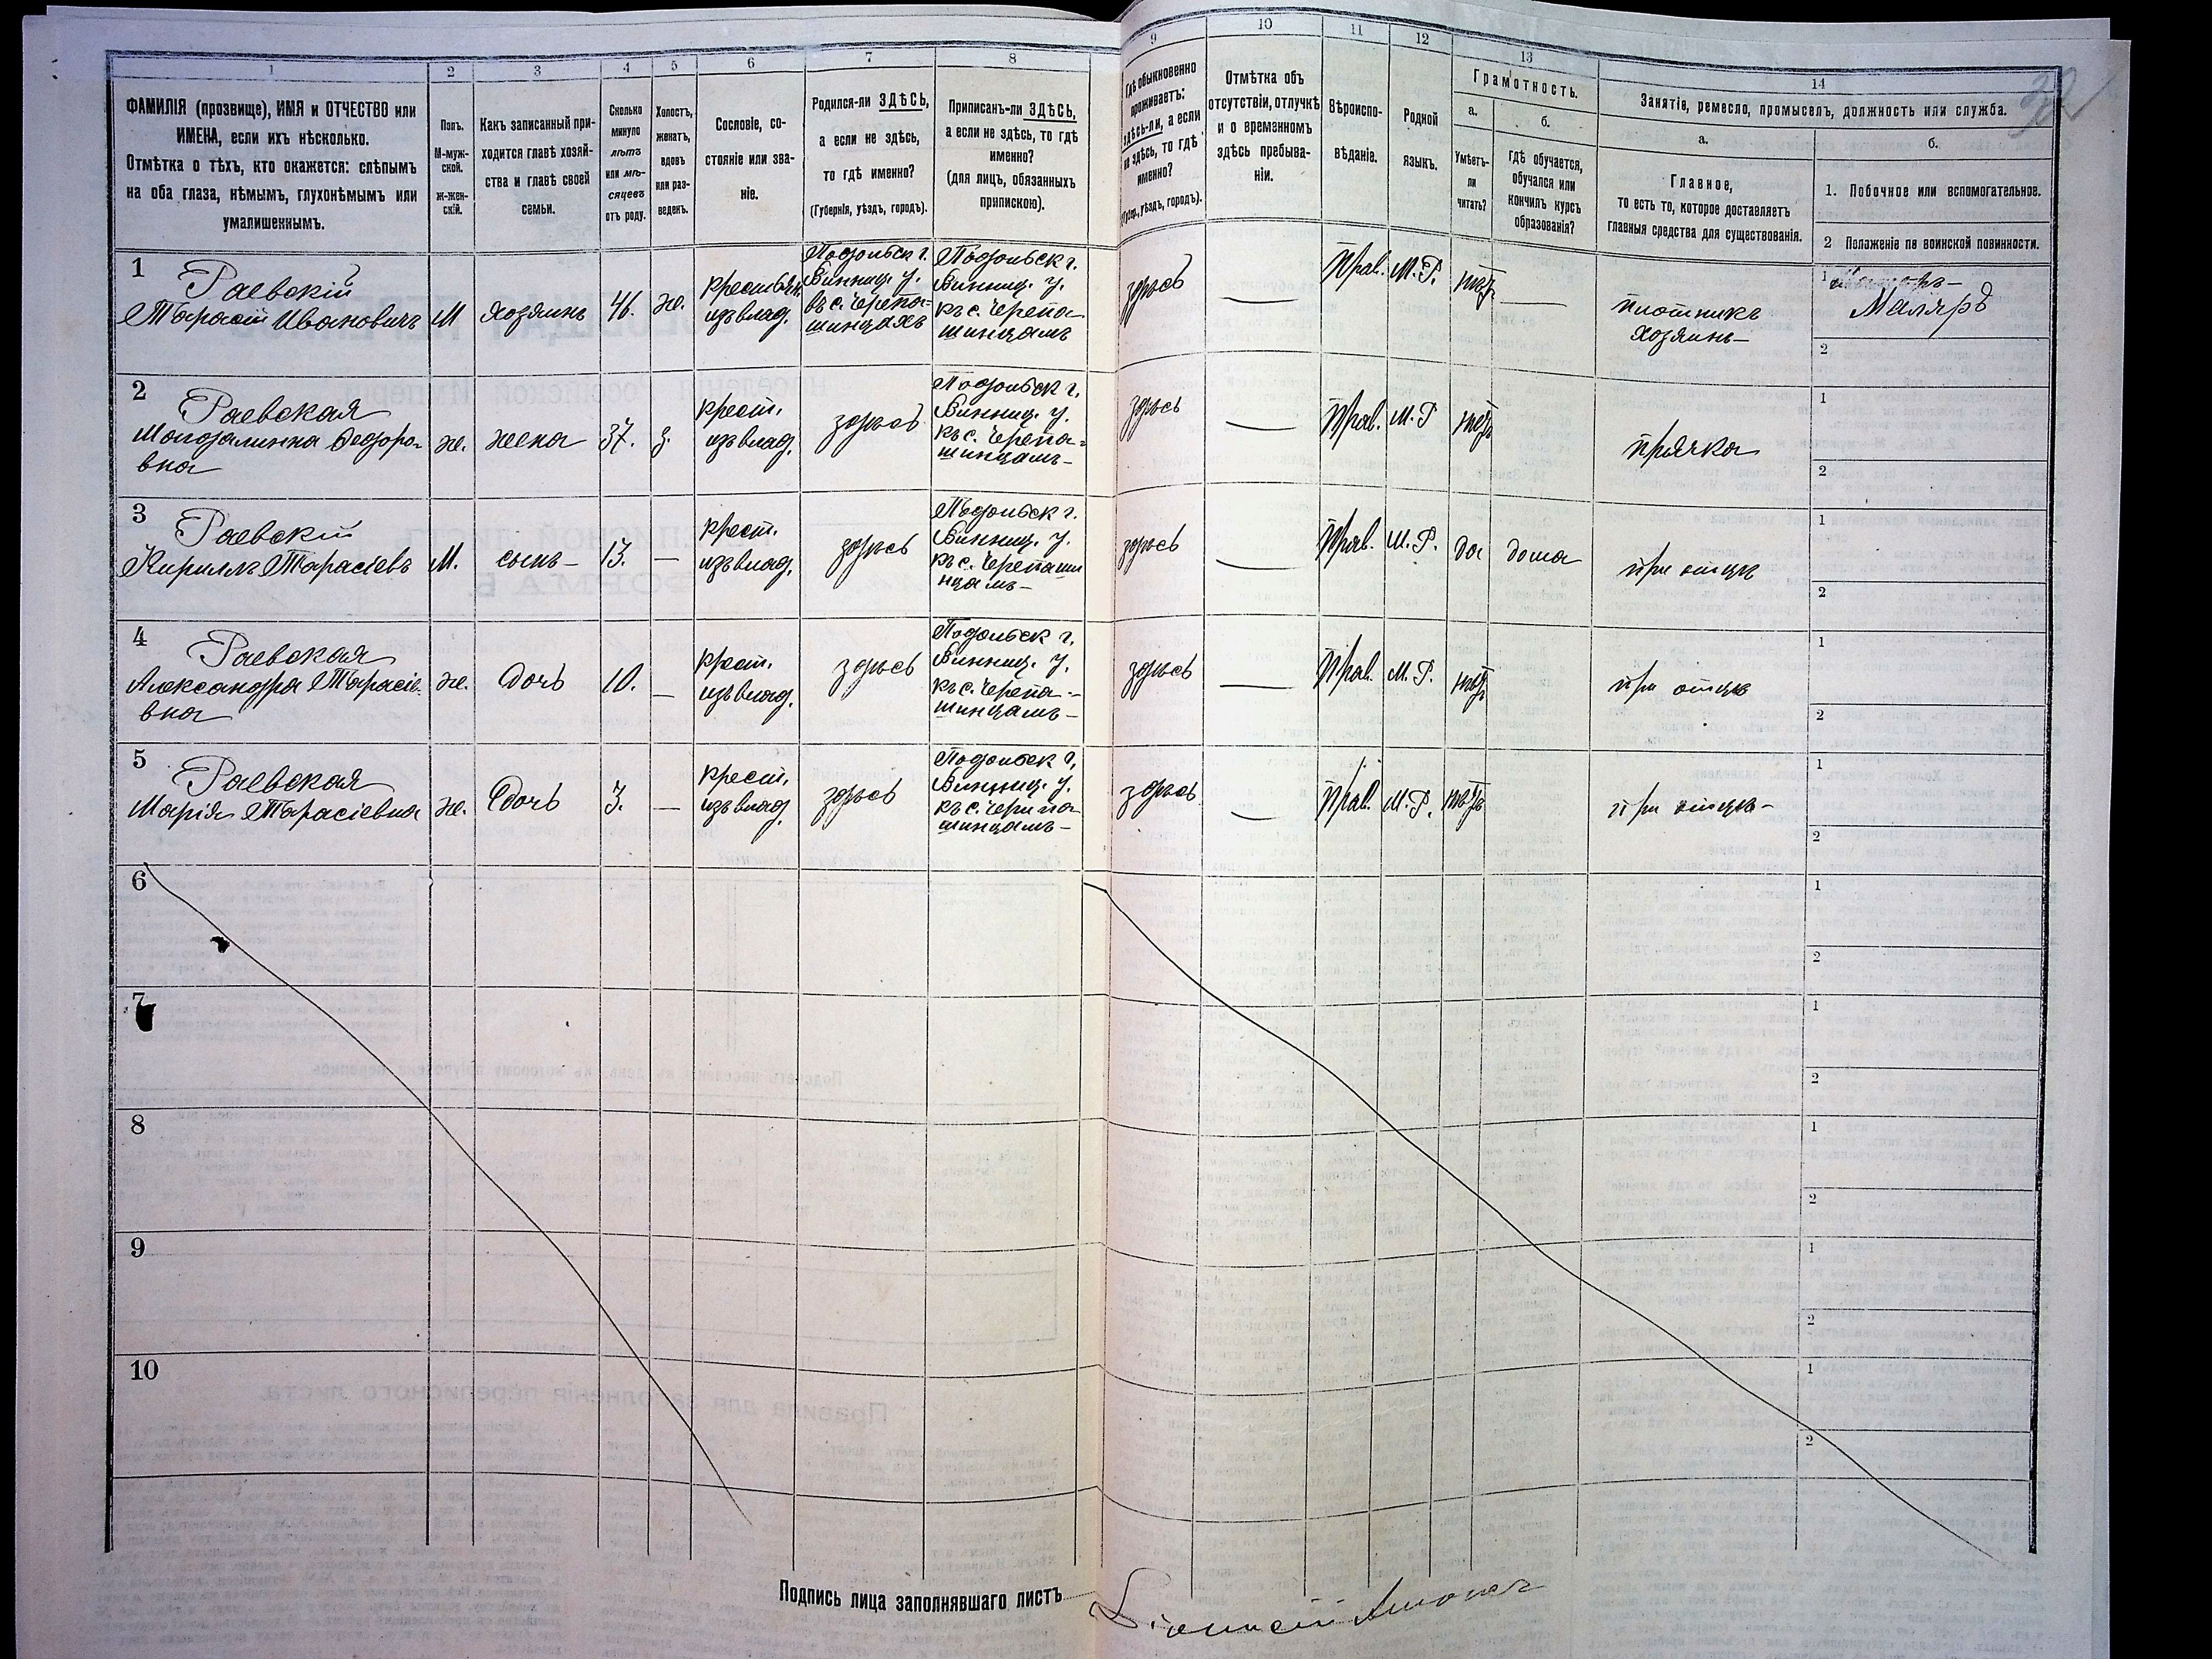 1 2 3 4 5 6 7 8 9 10 11 12 13 14
ФАМИЛІЯ (прозвище), ИМЯ и ОТЧЕСТВО или
ИМЕНА, если ихъ нѣсколько.
Отмѣтка о тѣхъ, кто окажется: слѣпымъ
на оба глаза, нѣмымъ, глухонѣмымъ или
умалишеннымъ.
Полъ.
М-муж-
ской.
ж-жен-
скій.
Какъ записанный при-
ходится главѣ хозяй-
ства и главѣ своей
семьи.
Сколько
минуло
лѣтъ
или мѣ-
сяцевъ
отъ роду.
Холостъ,
женатъ,
вдовъ
или раз-
веденъ.
Сословіе, со-
стояніе или зва-
ніе.
Родился-ли ЗДѢСЬ,
а если не здѣсь,
то гдѣ именно?
(Губернія, уѣздъ, городъ).
Приписанъ-ли ЗДѢСЬ,
а если не здѣсь, то гдѣ
именно?
(для лицъ, обязанныхъ
припискою).
Гдѣ обыкновенно
проживаетъ:
здѣсь-ли, а если
не здѣсь, то гдѣ
именно?
(Губер., уѣздъ, городъ).
Отмѣтка объ
отсутствіи, отлучкѣ
и о временномъ
здѣсь пребыва-
ніи.
Вѣроиспо-
вѣданіе.
Родной
языкъ.
Грамотность.
а.
Умѣетъ-
ли
читать?
б.
гдѣ обучается,
обучался или
кончилъ курсъ
образованія?
Занятіе, ремесло, промыселъ, должность или служба.
а.
Главное,
то есть то, которое доставляетъ
главныя средства для существованія.
б.
1. Побочное или вспомогательное.
2 Положеніе по воинской повинности.
1
Раевскій
Тарасій Ивановичъ
М
хозяинъ
46.
же.
крестьян.
изъ влад.
Подольск г.
Винниц. у.
въ с. Черепа=
шинцахъ
Подольск г.
Винниц. у.
къ с. Черепа
шинцамъ
здѣсь
Прав.
М.Р.
нѣтъ
плотникъ
хозяинъ
1
Маляръ
2
2
Раевская
Магдалинна Федоро-
вна
же.
жена
37.
з.
крест.
изъ влад.
здѣсь
Подольск г.
Винниц. у.
къ с. Черепа=
шинцамъ
здѣсь
Прав.
М.Р
нѣтъ
прячка
1
2
3
Раевскій
Кириллъ Тарасіевъ
М.
сынъ
13.
крест.
изъ влад.
здѣсь
Подольск г.
Винниц. у.
къ с. Черепаши
нцамъ
здѣсь
Прав.
М.Р.
да
дома
при отцѣ
1
2
4
Раевская
Александра Тарасіе-
вна
же.
дочь
10.
крест.
изъ влад.
здѣсь
Подольск г.
Винниц. у.
къ с. Черепа-
шинцамъ
здѣсь
Прав.
М.Р.
нѣтъ
при отцѣ
1
2
5
Раевская
Марія Тарасіевна
же.
дочь
3.
крест.
изъ влад.
здѣсь
Подольск г.
Винниц. у.
къ с. Черипа
шинцамъ
здѣсь
Прав.
М.Р.
нѣтъ
при отцѣ
1
2
6
1
2
7
1
2
8
1
2
9
1
2
10
1
2
Подпись лица заполнявшаго листъ